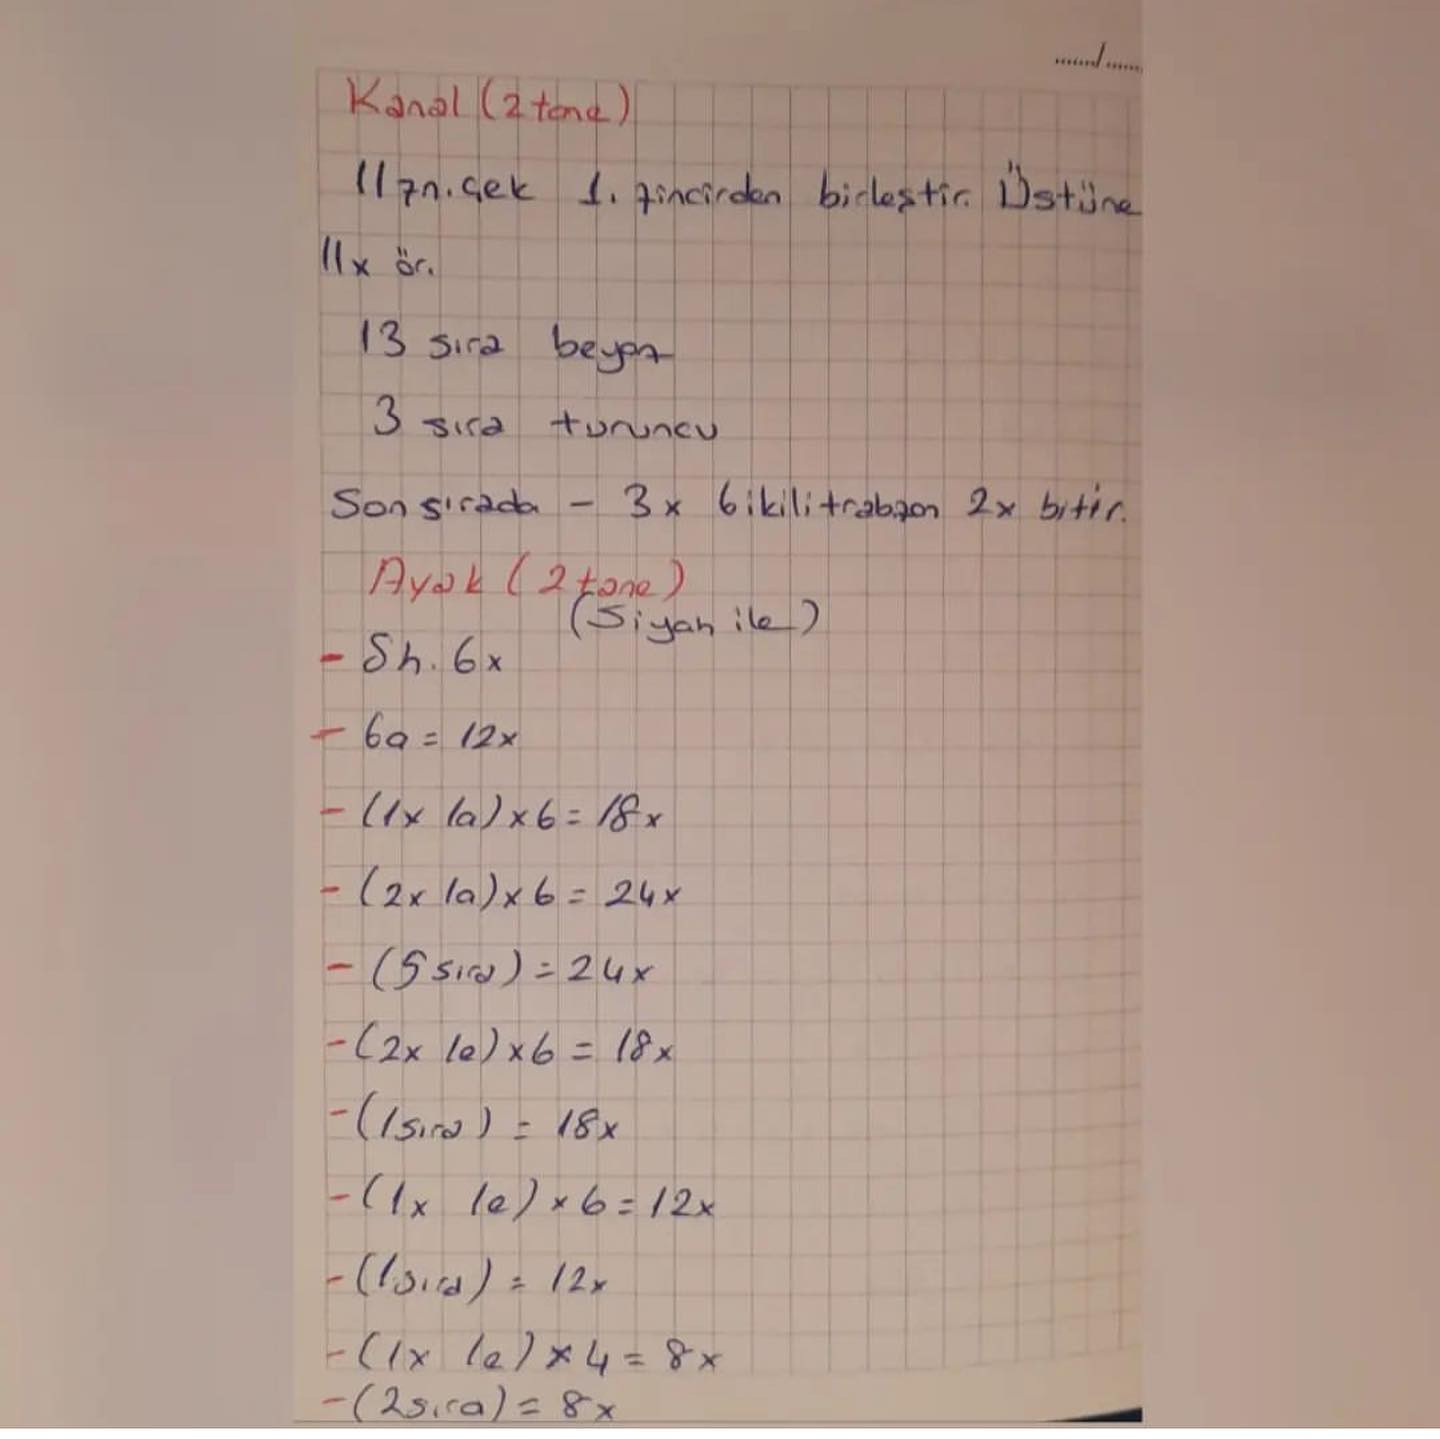 ...../.....
Kanal (2 tane)
11 zn. çek 1. zincirden birleştir. Üstüne
11x ör.
13 sıra beyaz
3 sıra turuncu
Son sırada - 3x 6 ikili trabzan 2x bitir.
Ayak (2 tane)
(Siyah ile)
- Sh. 6x
- 6a = 12x
- (1x 1a) x 6 = 18x
- (2x 1a) x 6 = 24x
- (5 sıra) = 24x
- (2x 1e) x 6 = 18x
- (1 sıra) = 18x
- (1x 1e) x 6 = 12x
- (1 sıra) = 12x
- (1x 1e) x 4 = 8x
- (2 sıra) = 8x